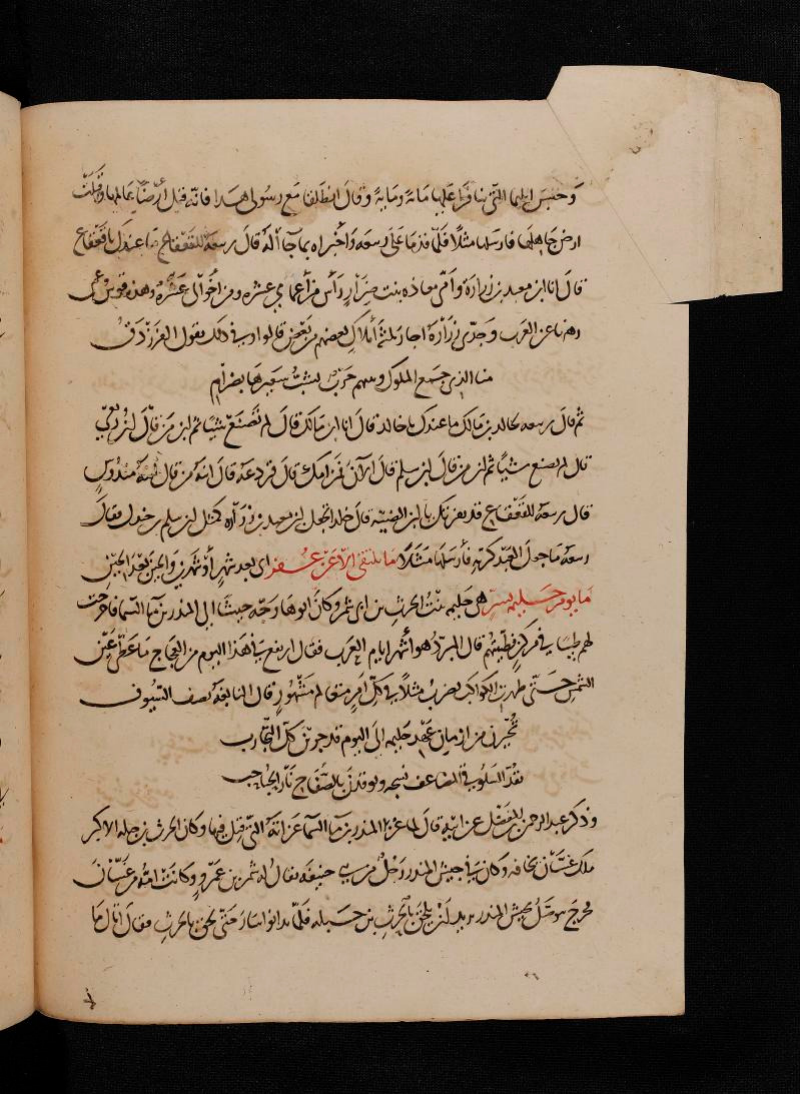 وحبس ابلهما التي بنا فزاعلها مائة ومائة وقال انطلقا مع رسولي هذا فانه قتل أرضا عالمها وقتلت
ارض جاهلها فارسلها مثلا فلما قدما على ربيعة واخبراه بما جاآ له قال ربيعة للقعقاع ما عندك يا قعقاع
قال انا ابن معبد بن زرارة وامي معاذة بنت ضرار رأس من أعمامي عشرة ومن أخوالي عشرة وهذه قوس عمي
رهنها عن العرب وجدي زرارة اجار ثلثة أملاك بعضهم من بعض قالوا وفي ذلك يقول الفرزدق
منا الذي جمع الملوك وبينهم حرب يشب سعيرها بضرام
ثم قال ربيعة لخالد بن مالك ما عندك يا خالد قال انا ابن مالك قال لم تصنع شيئا ثم ابن من قال ابن ربعي
قال لم تصنع شيئا ثم ابن من قال ابن سلمى قال الآن فمن امك قال فرذعة قال ابنة من قال ابنة مندوس
قال ربيعة للقعقاع قد نفرتك يا ابن الضبية قال خالد اتجعل ابن معبد بن زرارة كمثل ابن سلمى بن جندل فقال
ربيعة ما جعل العبد كربه فأرسلها مثلا ما نلتقي الا عن عفر اي بعد شهر أو شهرين والحين بعد الحين
ما يوم حليمة بسر هي حليمة بنت الحرث بن ابي شمر وكان ابوها وجه جيشا الى المنذر بن ما السما فاخرجت
لهم طيبا في مركن فطيبتهم قال المبرد هو أشهر ايام العرب فقال ارتفع في هذا اليوم من العجاج ما غطى عين
الشمس حتى ظهرت الكواكب يضرب مثلا في كل امر متعالم مشهور قال النابغة يصف السيوف
تخيرن من ازمان عهد حليمة الى اليوم قد جربن كل التجارب
تقد السلوقي المضاعف نسجه ويوقدن بالصفاح نار الحباحب
وذكر عبد الرحمن بن المفضل عن ابيه قال لما غزا المنذر بن ما السما غزاته التي قتل فيها وكان الحرث بن جبلة الاكبر
ملك غسان يخافه وكان في جيش المنذر رجل من بني حنيفة يقال له شمر بن عمرو وكانت امه من غسان
فخرج يتوصل بجيش المنذر يريد ان يلحق بالحرث بن جبلة فلما تدانوا سار حتى لحق بالحرث فقال اتاك ما